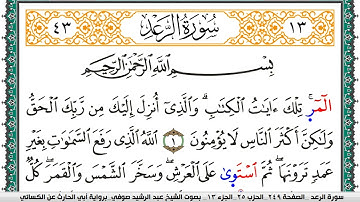 ٤٣ سُورَةُ الرَّعْدِ ١٣
بِسْمِ اللَّهِ الرَّحْمَٰنِ الرَّحِيمِ
الٓمٓرۚ تِلْكَ ءَايَٰتُ الْكِتَٰبِۗ وَالَّذِىٓ أُنزِلَ إِلَيْكَ مِن رَّبِّكَ الْحَقُّ
وَلَٰكِنَّ أَكْثَرَ النَّاسِ لَا يُؤْمِنُونَ ١ اللَّهُ الَّذِى رَفَعَ السَّمَٰوَٰتِ بِغَيْرِ
عَمَدٍ تَرَوْنَهَاۖ ثُمَّ اسْتَوَىٰ عَلَى الْعَرْشِۖ وَسَخَّرَ الشَّمْسَ وَالْقَمَرَۖ كُلٌّ
سورة الرعد الصفحة ٢٤٩ الحزب ٢٥ الجزء ١٣ بصوت الشيخ عبد الرشيد صوفي برواية أبي الحارث عن الكسائي